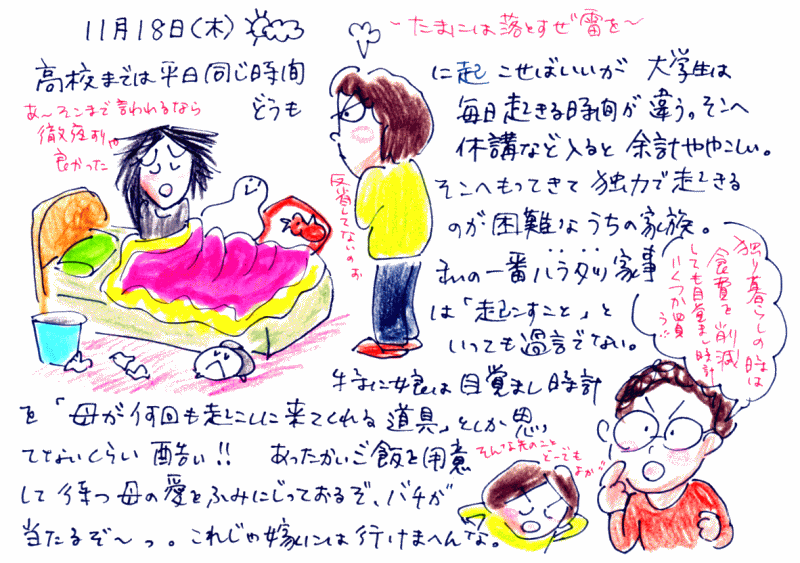 11月18日(木)
〜たまには落とすぜ雷を〜
高校までは平日同じ時間
に起こせばいいが 大学生は
どうも
毎日起きる時間が違う。そこへ
休講など入ると 余計ややこしい。
そこへもってきて 独力で起きる
のが困難なうちの家族。
私の一番ハラタツ家事
は「起こすこと」と
いっても過言でない。
特に娘は目覚まし時計
を「母が何回も起こしに来てくれる道具」としか思っ
てないくらい酷い!! あったかいご飯を用意
して待つ母の愛をふみにじっておるぞ、バチが
当たるぞ〜っ。これじゃ嫁には行けまへんな。
あ〜そこまで言われるなら
徹夜すりゃ
良かった
反省してないのぉ
独り暮らしの時は
食費を削減
しても目覚まし時計
いくつか買
う!!
そんな先のこと
どーでも
よかデ